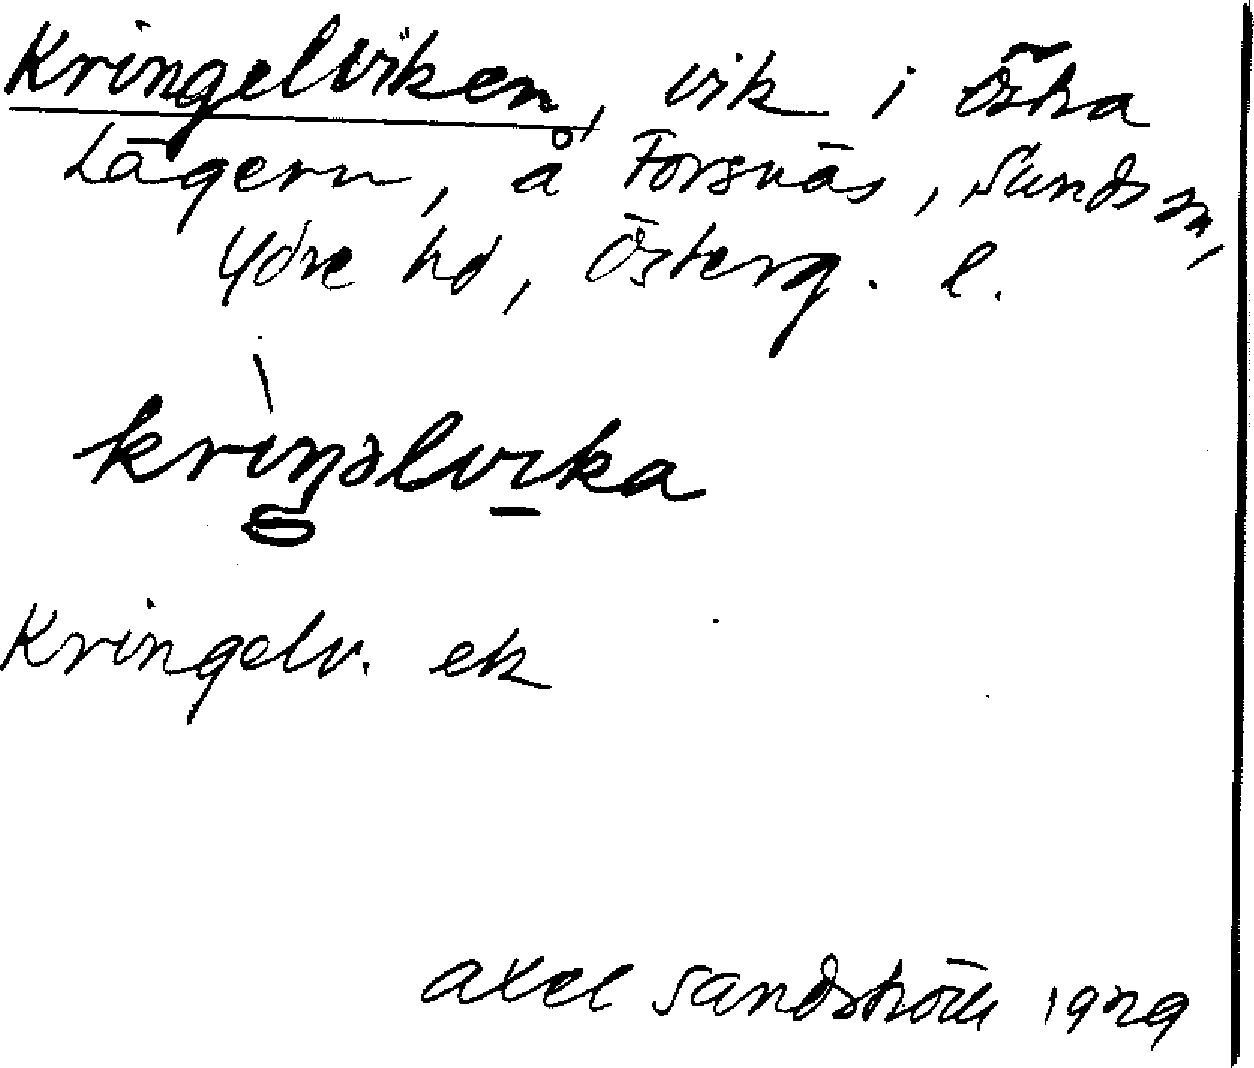 Kringelviken, vik i Östra
Lägern, å Forsnäs, Sunds sn,
Ydre hd, Österg. l.
krìŋəlvika
Kringelv. ek
Axel Sandström 1929